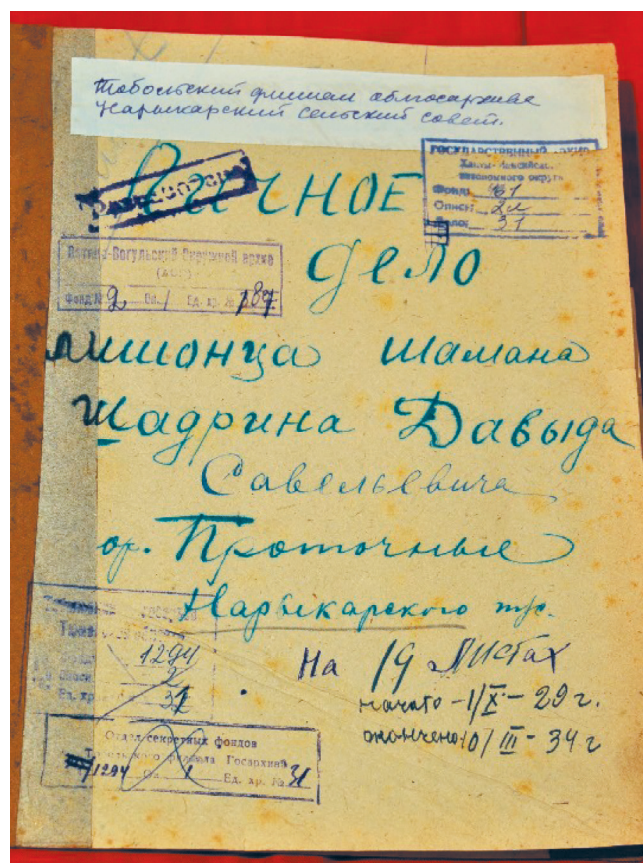 Тобольский филиал облгосархива
Нарыкарский сельский совет.
РАССЕКРЕЧЕНО
ГОСУДАРСТВЕННЫЙ АРХИВ
Ханты-Мансийского
автономного округа
Фонд: 61
Опись: 2л
Дело: 31
Личное
Дело
Остяко-Вогульский Окружной архив
Фонд № 2 Оп. 1 Ед. хр. № 187
лишонца шамана
Шадрина Давыда
Савельевича
юр. Проточные
Нарыкарского т/с.
1294
2
Ед. хр. 31
На 19 листах
начато - 1/X - 29 г.
окончено 10/III - 34 г
Отдел секретных фондов
Тобольского филиала Госархива
1294 Оп 1 Ед. хр. № 31